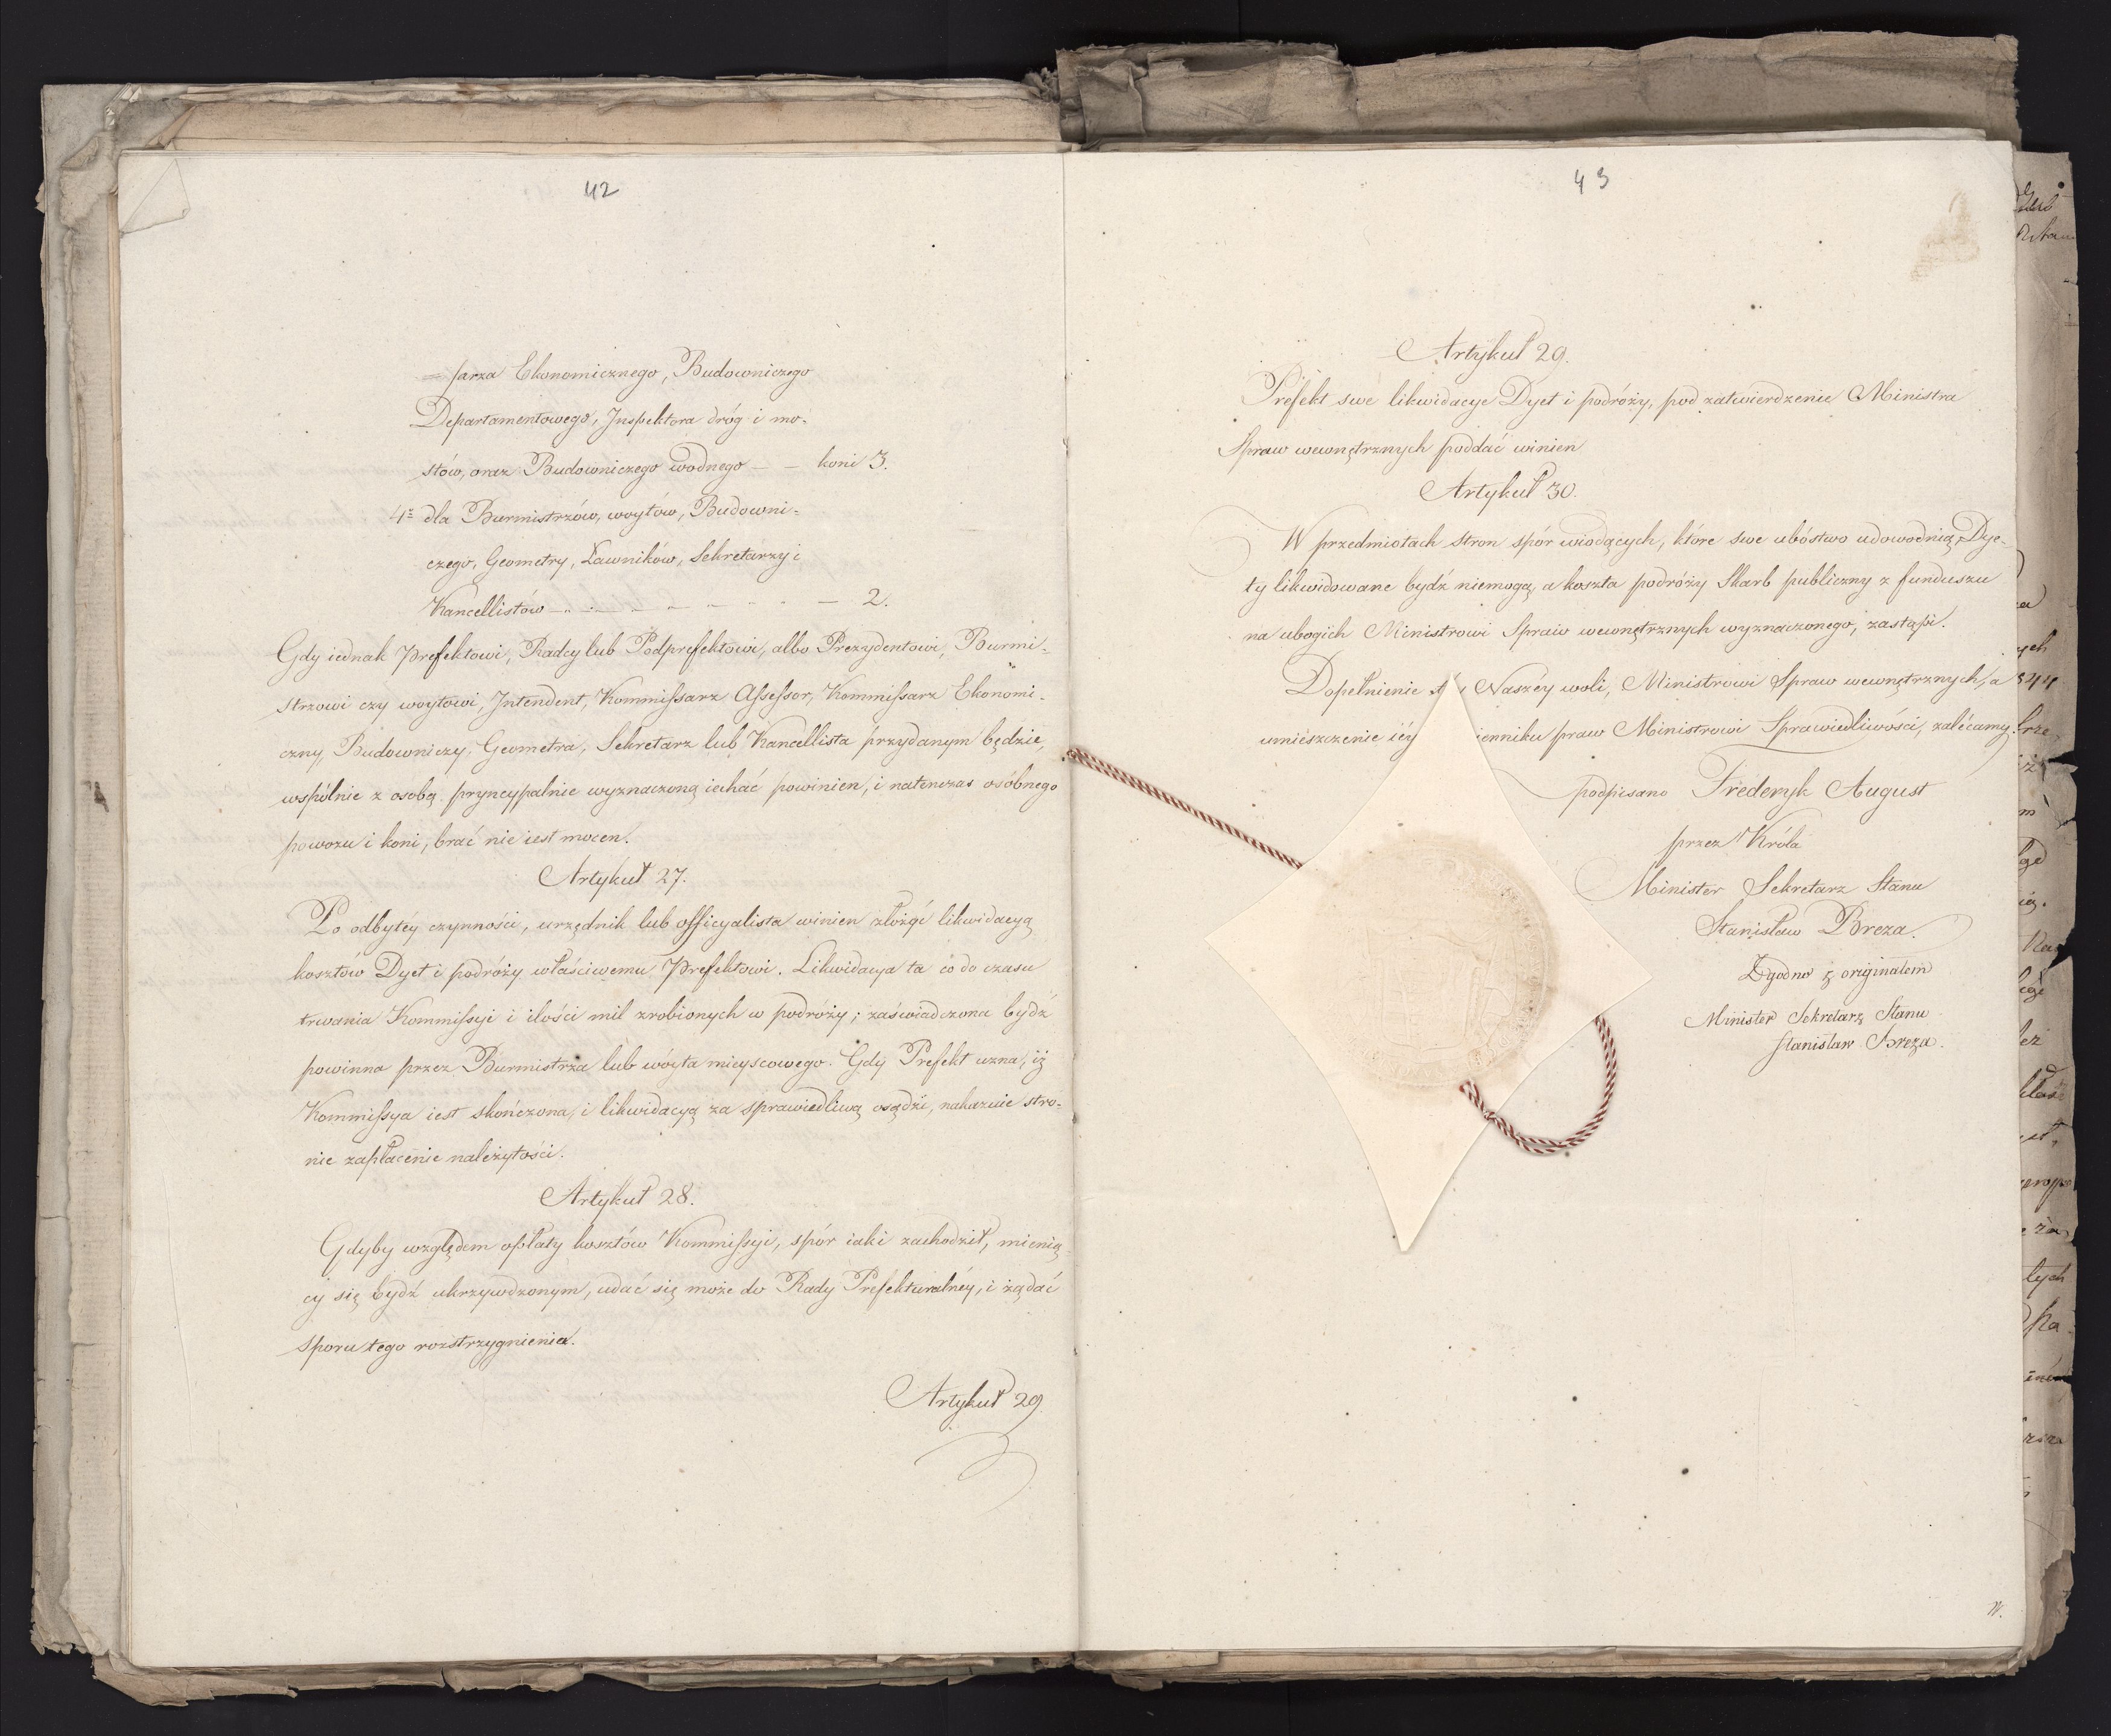 42
= sarza Ekonomicznego, Budowniczego
Departamentowego, Jnspektora dróg i mo-
stów, oraz Budowniczego wodnego — — koni 3.
4= dla Burmistrzów, woytów, Budowni-
czego, Geometry, Ławników, Sekretarzy i
Kancellistów — — — — — 2.
Gdy iednak Prefektowi, Radcy lub Podprefektowi, albo Prezydentowi, Burmi-
strzowi czy woytowi, Jntendent, Kommissarz Assessor, Kommissarz Ekonomi-
czny, Budowniczy, Geometra, Sekretarz lub Kancellista przydanym będzie,
wspólnie z osobą pryncypalnie wyznaczoną iechać powinien, i natenczas osóbnego
powozu i koni, brać nie iest mocen.
Artykuł 27.
Po odbytéy czynności, urzędnik lub officyalista winien złożyć likwidacyą
kosztów Dyet i podróży właściwemu Prefektowi. Likwidacya ta co do czasu
trwania Kommissyi i ilości mil zrobionych w podróży; zaświadczona bydź
powinna przez Burmistrza lub wóyta mieyscowego. Gdy Prefekt uzna, iż
Kommissya iest skończona, i likwidacyą za sprawiedliwą osądzi, nakazuie stro-
nie zapłacenie należytości.
Artykuł 28.
Gdyby względem opłaty kosztów Kommissyi, spór iaki zachodził, mienią-
cy się bydź ukrzywdzonym, udać się może do Rady Prefekturalnéy, i żądać
sporu tego rozstrzygnienia.
Artykuł 29.
43
Artykuł 29.
Prefekt swe likwidacye Dyet i podróży, pod zatwierdzenie Ministra
Spraw wewnętrznych poddać winien
Artykuł 30.
W przedmiotach stron spór wiodących, które swe ubóstwo udowodnią, Dye-
ty likwidowane bydź niemogą, a koszta podróży Skarb publiczny z funduszu
na ubogich Ministrowi Spraw wewnętrznych wyznaczonego, zastąpi.
Dopełnienie Naszéy woli, Ministrowi Spraw wewnętrznych, a
umieszczenie iéy ienniku praw Ministrowi Sprawiedliwości, zalécamy.
podpisano Frederyk August
przez Króla
Minister Sekretarz Stanu
Stanisław Breza.
Zgodno z originałem
Minister Sekretarz Stanu
Stanisław Breza.
W.